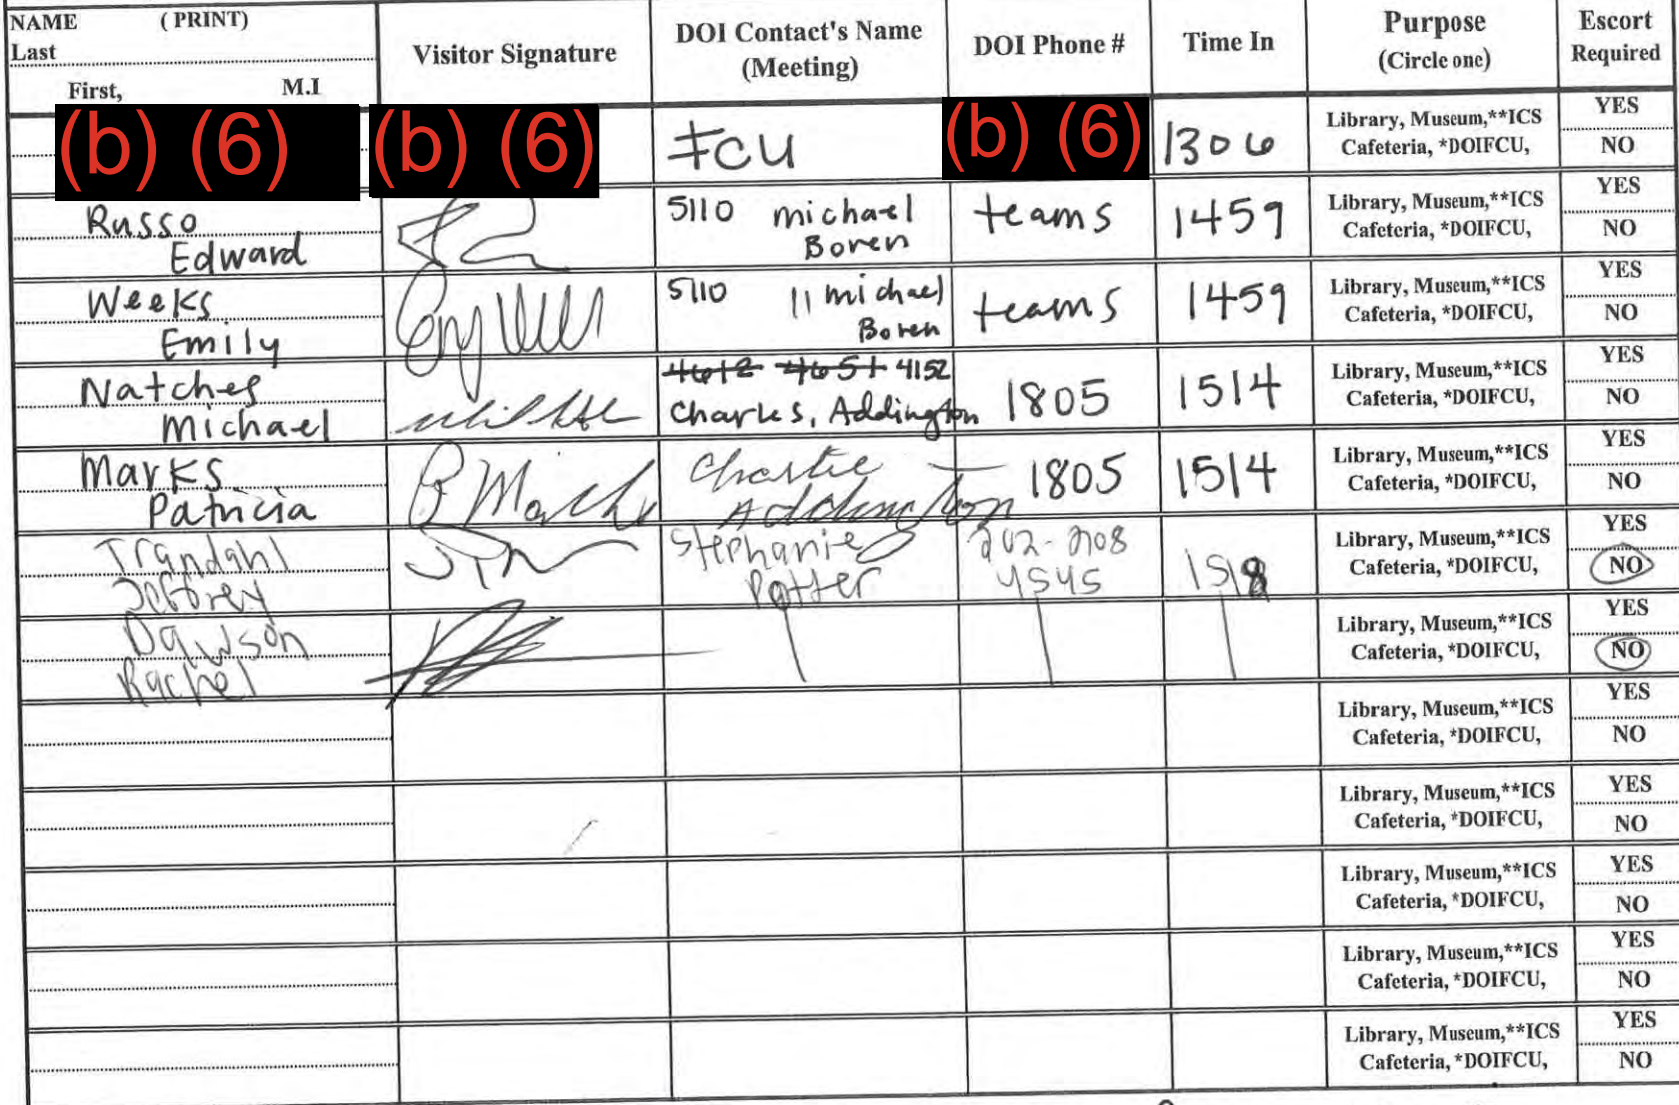 NAME ( PRINT)
Last
First, M.I
Visitor Signature
DOI Contact's Name
(Meeting)
DOI Phone #
Time In
Purpose
(Circle one)
Escort
Required
(b) (6) (b) (6) FCU (b) (6) 1306
Library, Museum,**ICS
Cafeteria, *DOIFCU,
YES
NO
Russo
Edward
5110 michael
Boren
teams
1459
Library, Museum,**ICS
Cafeteria, *DOIFCU,
YES
NO
Weeks
Emily
5110 11 michael
Boren
teams
1459
Library, Museum,**ICS
Cafeteria, *DOIFCU,
YES
NO
Natches
Michael
4612 4651 4152
Charles, Addington
1805
1514
Library, Museum,**ICS
Cafeteria, *DOIFCU,
YES
NO
Marks
Patricia
Charlie
Addington
1805
1514
Library, Museum,**ICS
Cafeteria, *DOIFCU,
YES
NO
Trandahl
Jeffrey
Stephanie
Potter
202-208
4545
1518
Library, Museum,**ICS
Cafeteria, *DOIFCU,
YES
NO
Dawson
Rachel
Library, Museum,**ICS
Cafeteria, *DOIFCU,
YES
NO
Library, Museum,**ICS
Cafeteria, *DOIFCU,
YES
NO
Library, Museum,**ICS
Cafeteria, *DOIFCU,
YES
NO
Library, Museum,**ICS
Cafeteria, *DOIFCU,
YES
NO
Library, Museum,**ICS
Cafeteria, *DOIFCU,
YES
NO
Library, Museum,**ICS
Cafeteria, *DOIFCU,
YES
NO